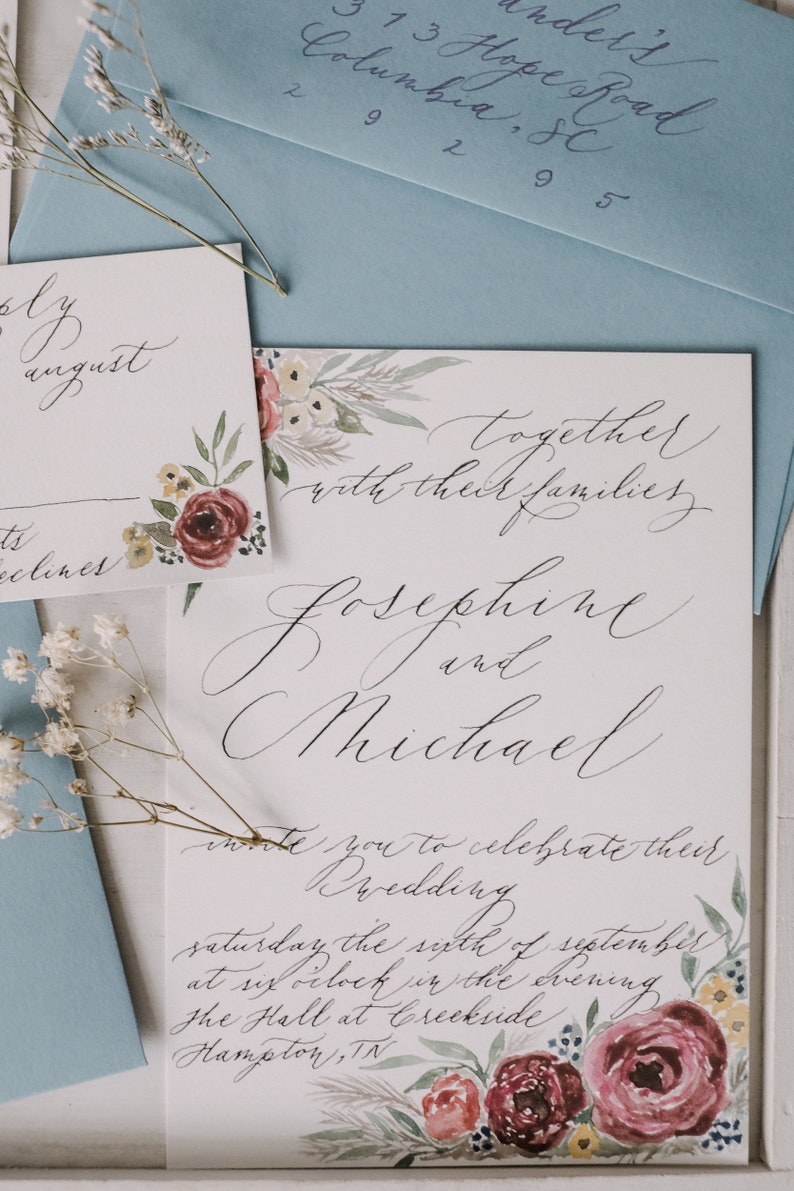 ander's
313 Hope Road
Columbia, SC
29295
ply
august
ts
declines
together
with their families
Josephine
and
Michael
invite you to celebrate their
wedding
saturday the sixth of september
at six o'clock in the evening
The Hall at Creekside
Hampton, TN